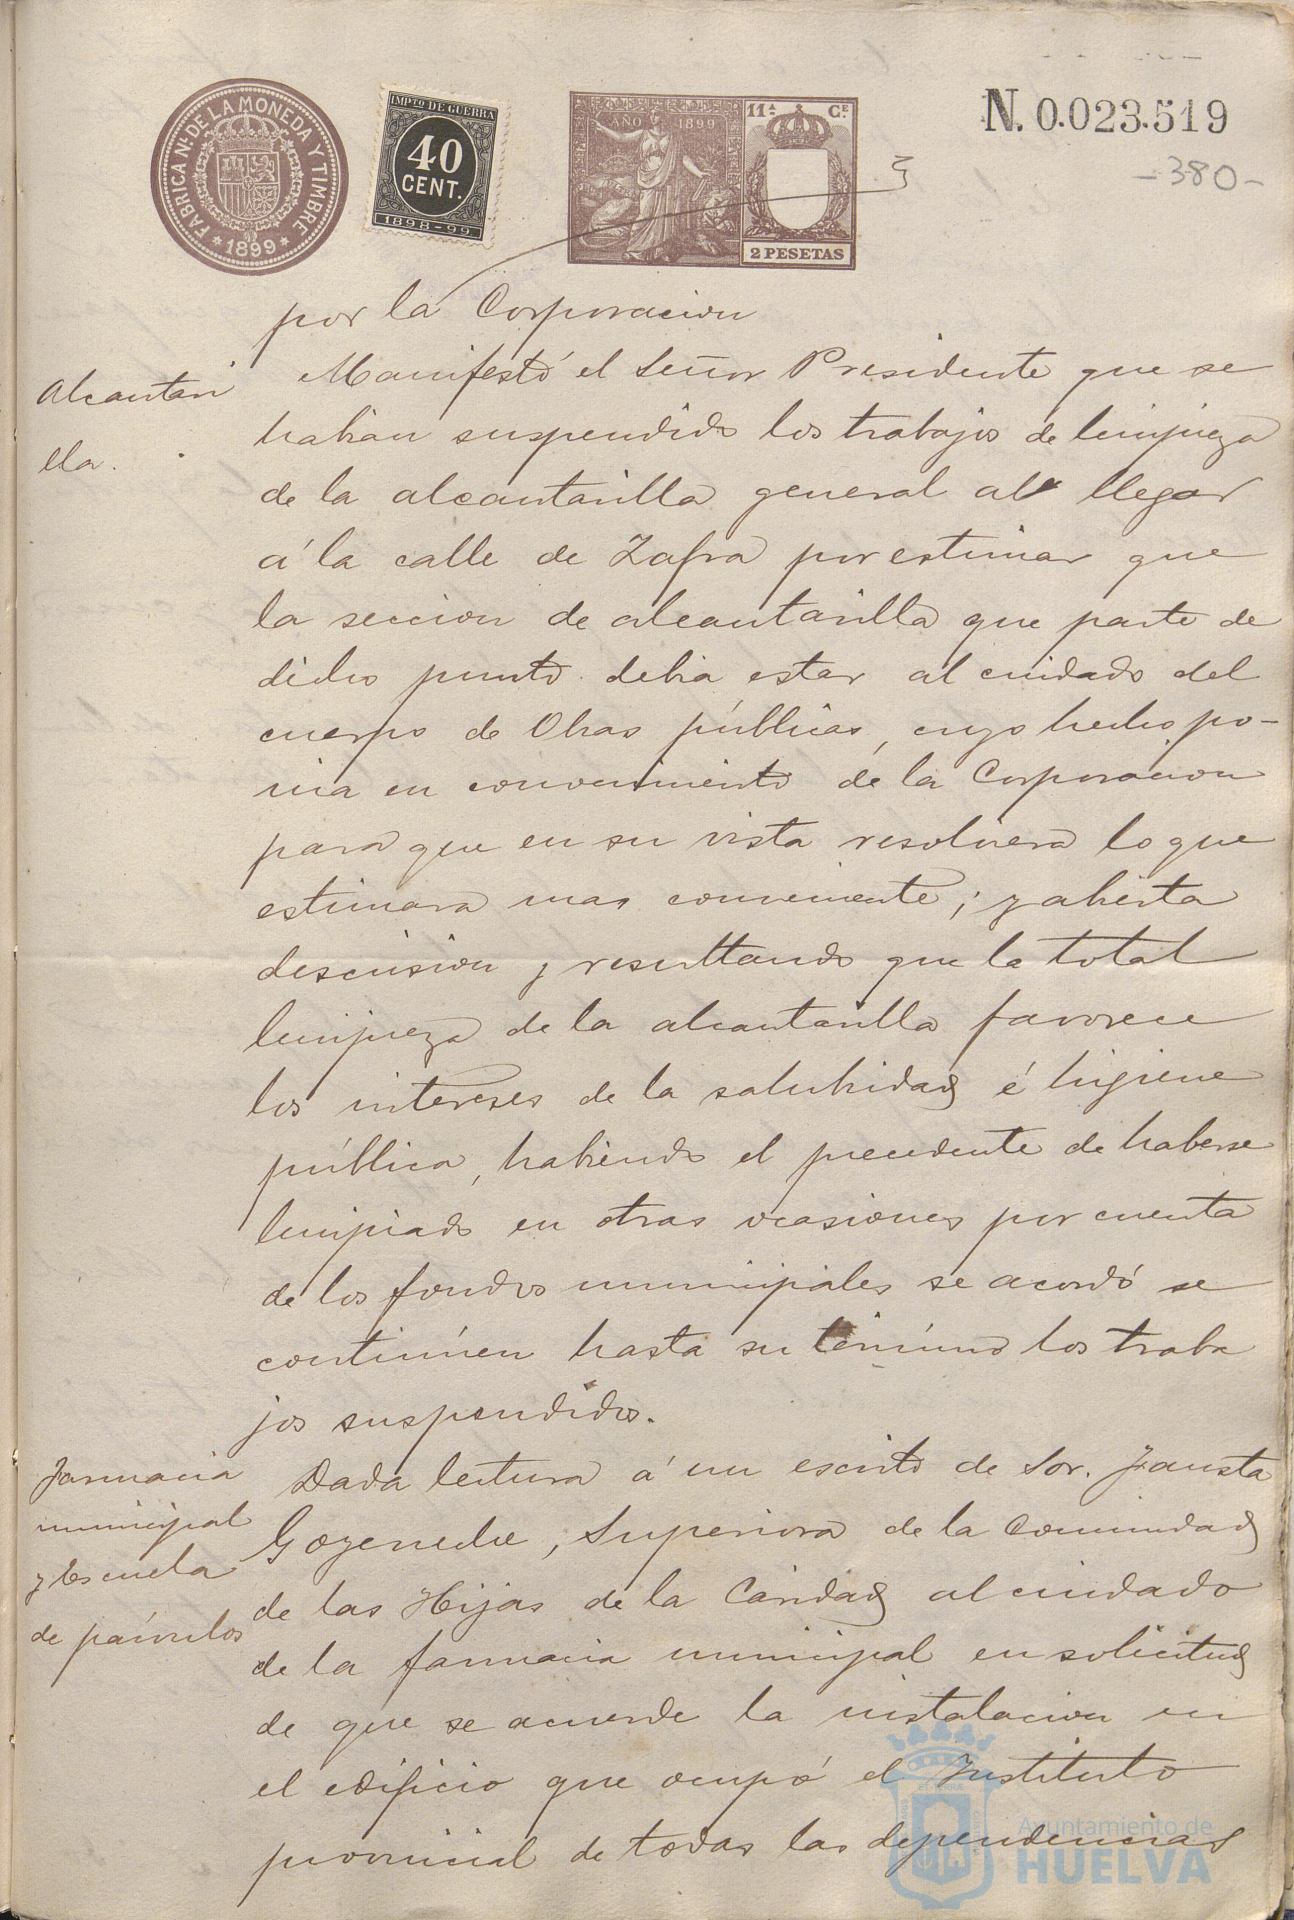 FABRICA Nl. DE LA MONEDA Y TIMBRE
* 1899 *
IMPTO DE GUERRA
40
CENT.
1898-99
AÑO 1899
11ª CE.
2 PESETAS
N. 0.023.519
-380-
por la Corporacion
Alcantari
lla.
Manifestó el Señor Presidente que se
habian suspendido los trabajos de limpieza
de la alcantarilla general al llegar
á la calle de Zafra por estimar que
la seccion de alcantarilla que parte de
dicho punto debia estar al cuidado del
cuerpo de Obras públicas, cuyo hecho po-
nia en conocimiento de la Corporacion
para que en su vista resolviera lo que
estimara mas conveniente; y abierta
discusion y resultando que la total
limpieza de la alcantarilla favorece
los intereses de la salubridad é higiene
pública, habiendo el precedente de haberse
limpiado en otras ocasiones por cuenta
de los fondos municipales se acordó se
continúen hasta su término los traba
jos suspendidos.
Farmacia
municipal
y Escuela
de párvulos
Dada lectura á un escrito de Sor. Fausta
Goyeneche, Superiora de la Comunidad
de las Hijas de la Caridad al cuidado
de la farmacia municipal en solicitud
de que se acuerde la instalacion en
el edificio que ocupó el Instituto
provincial de todas las dependencias
Ayuntamiento de
HUELVA